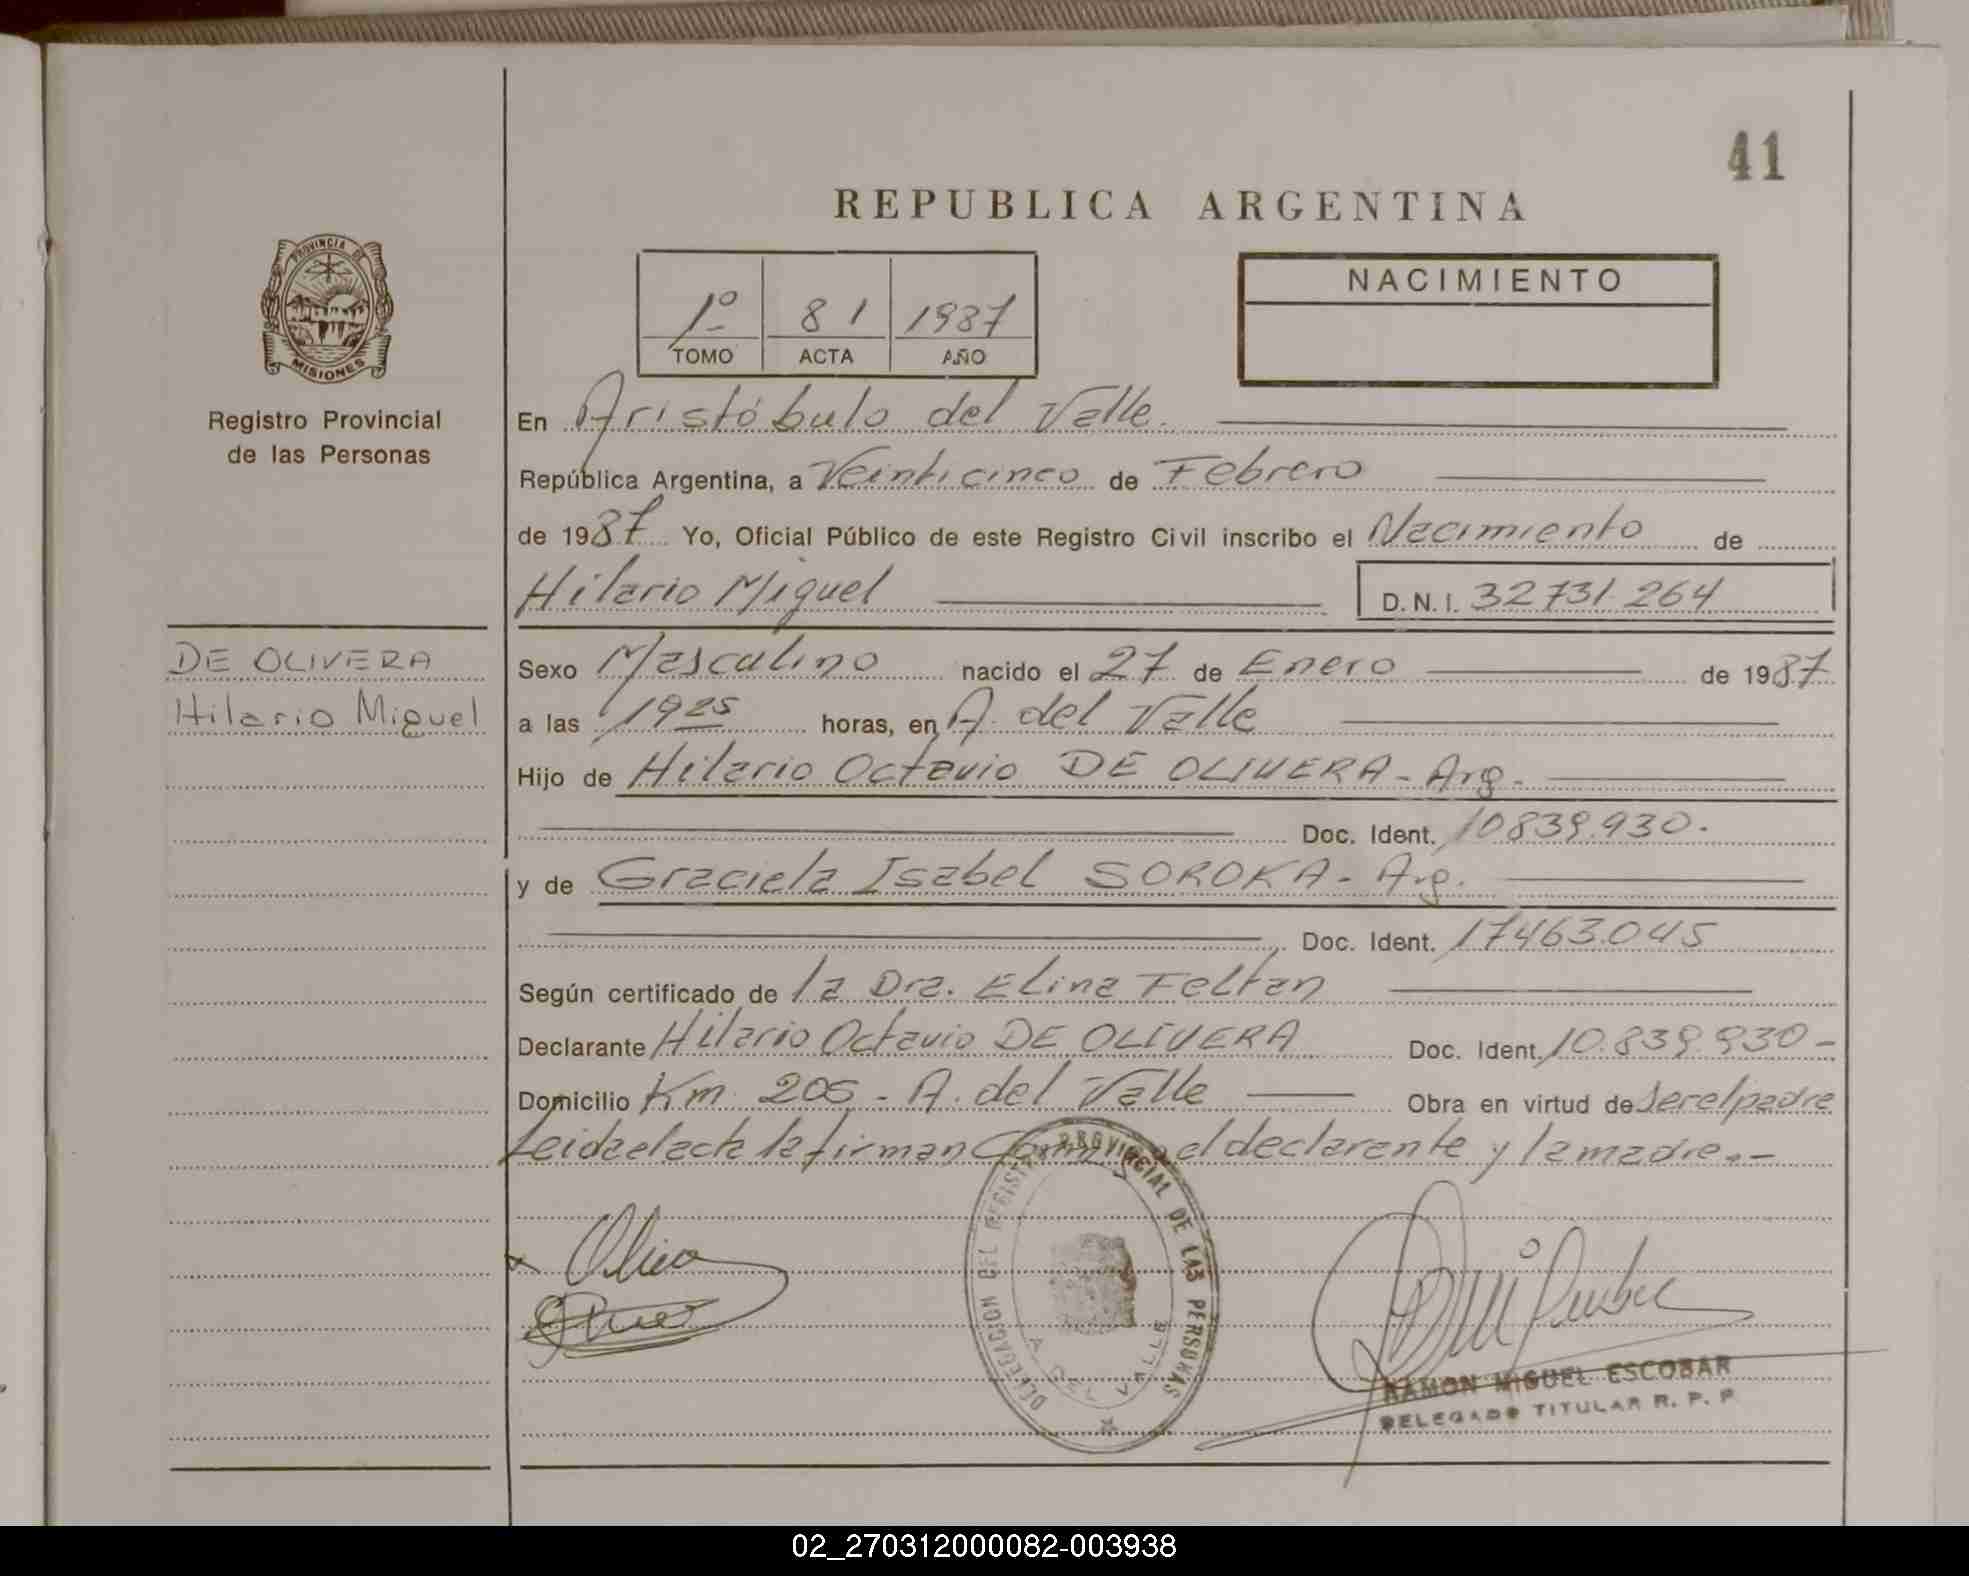 41
REPUBLICA ARGENTINA
PROVINCIA DE
MISIONES
Registro Provincial
de las Personas
1º 81 1987
TOMO ACTA AÑO
NACIMIENTO
En Aristóbulo del Valle.
República Argentina, a Veinticinco de Febrero
de 1987 Yo, Oficial Público de este Registro Civil inscribo el Nacimiento de
Hilario Miguel D.N.I. 32731.264
DE OLIVERA
Hilario Miguel
Sexo Masculino nacido el 27 de Enero de 1987
a las 1925 horas, en A. del Valle
Hijo de Hilario Octavio DE OLIVERA - Arg.-
Doc. Ident. 10839.930.
y de Graciela Isabel SOROKA - Arg.
Doc. Ident. 17463.045
Según certificado de la Dra. Elina Feltan
Declarante Hilario Octavio DE OLIVERA Doc. Ident. 10.839.930-
Domicilio Km. 205 - A. del Valle Obra en virtud de ser el padre
Leida el acta la firman el declarante y la madre.-
DELEGACION DEL REGISTRO PROVINCIAL DE LAS PERSONAS
A DEL VALLE
RAMON MIGUEL ESCOBAR
DELEGADO TITULAR R. P. P.
02_270312000082-003938